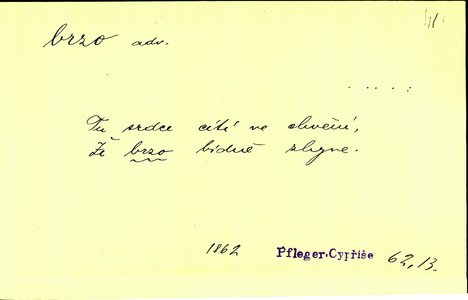 brzo adv.
. . . . .
Tu srdce cítí ve chvění,
Že brzo bídně zhyne.
1862 Pfleger.Cypřiše 62,13.